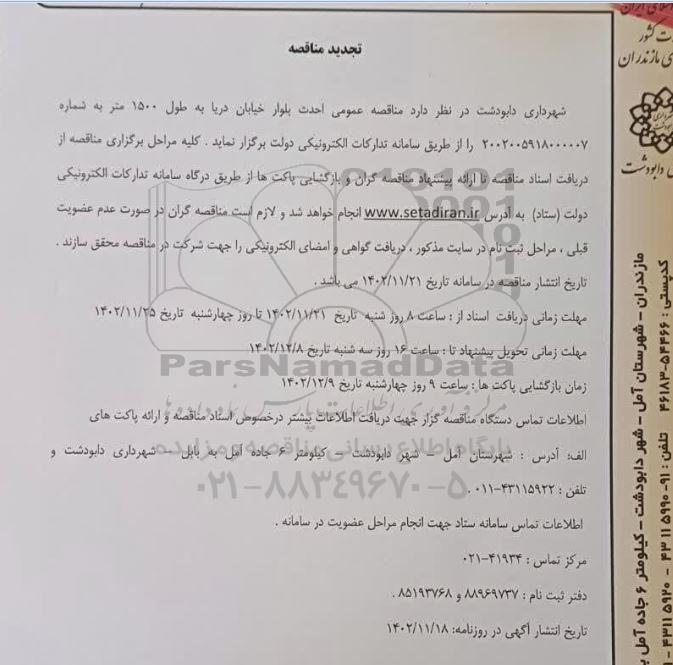 تجدید مناقصه
شهرداری دابودشت در نظر دارد مناقصه عمومی احدث بلوار خیابان دریا به طول ۱۵۰۰ متر به شماره
۲۰۰۲۰۰۵۹۱۸۰۰۰۰۰۷ را از طریق سامانه تدارکات الکترونیکی دولت برگزار نماید . کلیه مراحل برگزاری مناقصه از
دریافت اسناد مناقصه تا ارائه پیشنهاد مناقصه گران و بازگشایی پاکت ها از طریق درگاه سامانه تدارکات الکترونیکی
دولت (ستاد) به آدرس www.setadiran.ir انجام خواهد شد و لازم است مناقصه گران در صورت عدم عضویت
قبلی ، مراحل ثبت نام در سایت مذکور ، دریافت گواهی و امضای الکترونیکی را جهت شرکت در مناقصه محقق سازند .
تاریخ انتشار مناقصه در سامانه تاریخ ۱۴۰۲/۱۱/۲۱ می باشد .
مهلت زمانی دریافت اسناد از : ساعت ۸ روز شنبه تاریخ ۱۴۰۲/۱۱/۲۱ تا روز چهارشنبه تاریخ ۱۴۰۲/۱۱/۲۵
مهلت زمانی تحویل پیشنهاد تا : ساعت ۱۶ روز سه شنبه تاریخ ۱۴۰۲/۱۲/۸
ParsNamadData
زمان بازگشایی پاکت ها : ساعت ۹ روز چهارشنبه تاریخ ۱۴۰۲/۱۲/۹
اطلاعات تماس دستگاه مناقصه گزار جهت دریافت اطلاعات بیشتر درخصوص اسناد مناقصه و ارائه پاکت های
پایگاه اطلاع رسانی مناقصه و مزایده
الف: آدرس : شهرستان آمل – شهر دابودشت – کیلومتر ۶ جاده آمل به بابل – شهرداری دابودشت و
۰۲۱-۸۸۳۴۹۶۷۰-۵
تلفن : ۴۳۱۱۵۹۲۲-۰۱۱ .
اطلاعات تماس سامانه ستاد جهت انجام مراحل عضویت در سامانه .
مرکز تماس : ۴۱۹۳۴-۰۲۱
دفتر ثبت نام : ۸۸۹۶۹۷۳۷ و ۸۵۱۹۳۷۶۸ .
تاریخ انتشار آگهی در روزنامه: ۱۴۰۲/۱۱/۱۸
مازندران – شهرستان آمل – شهر دابودشت – کیلومتر ۶ جاده آمل